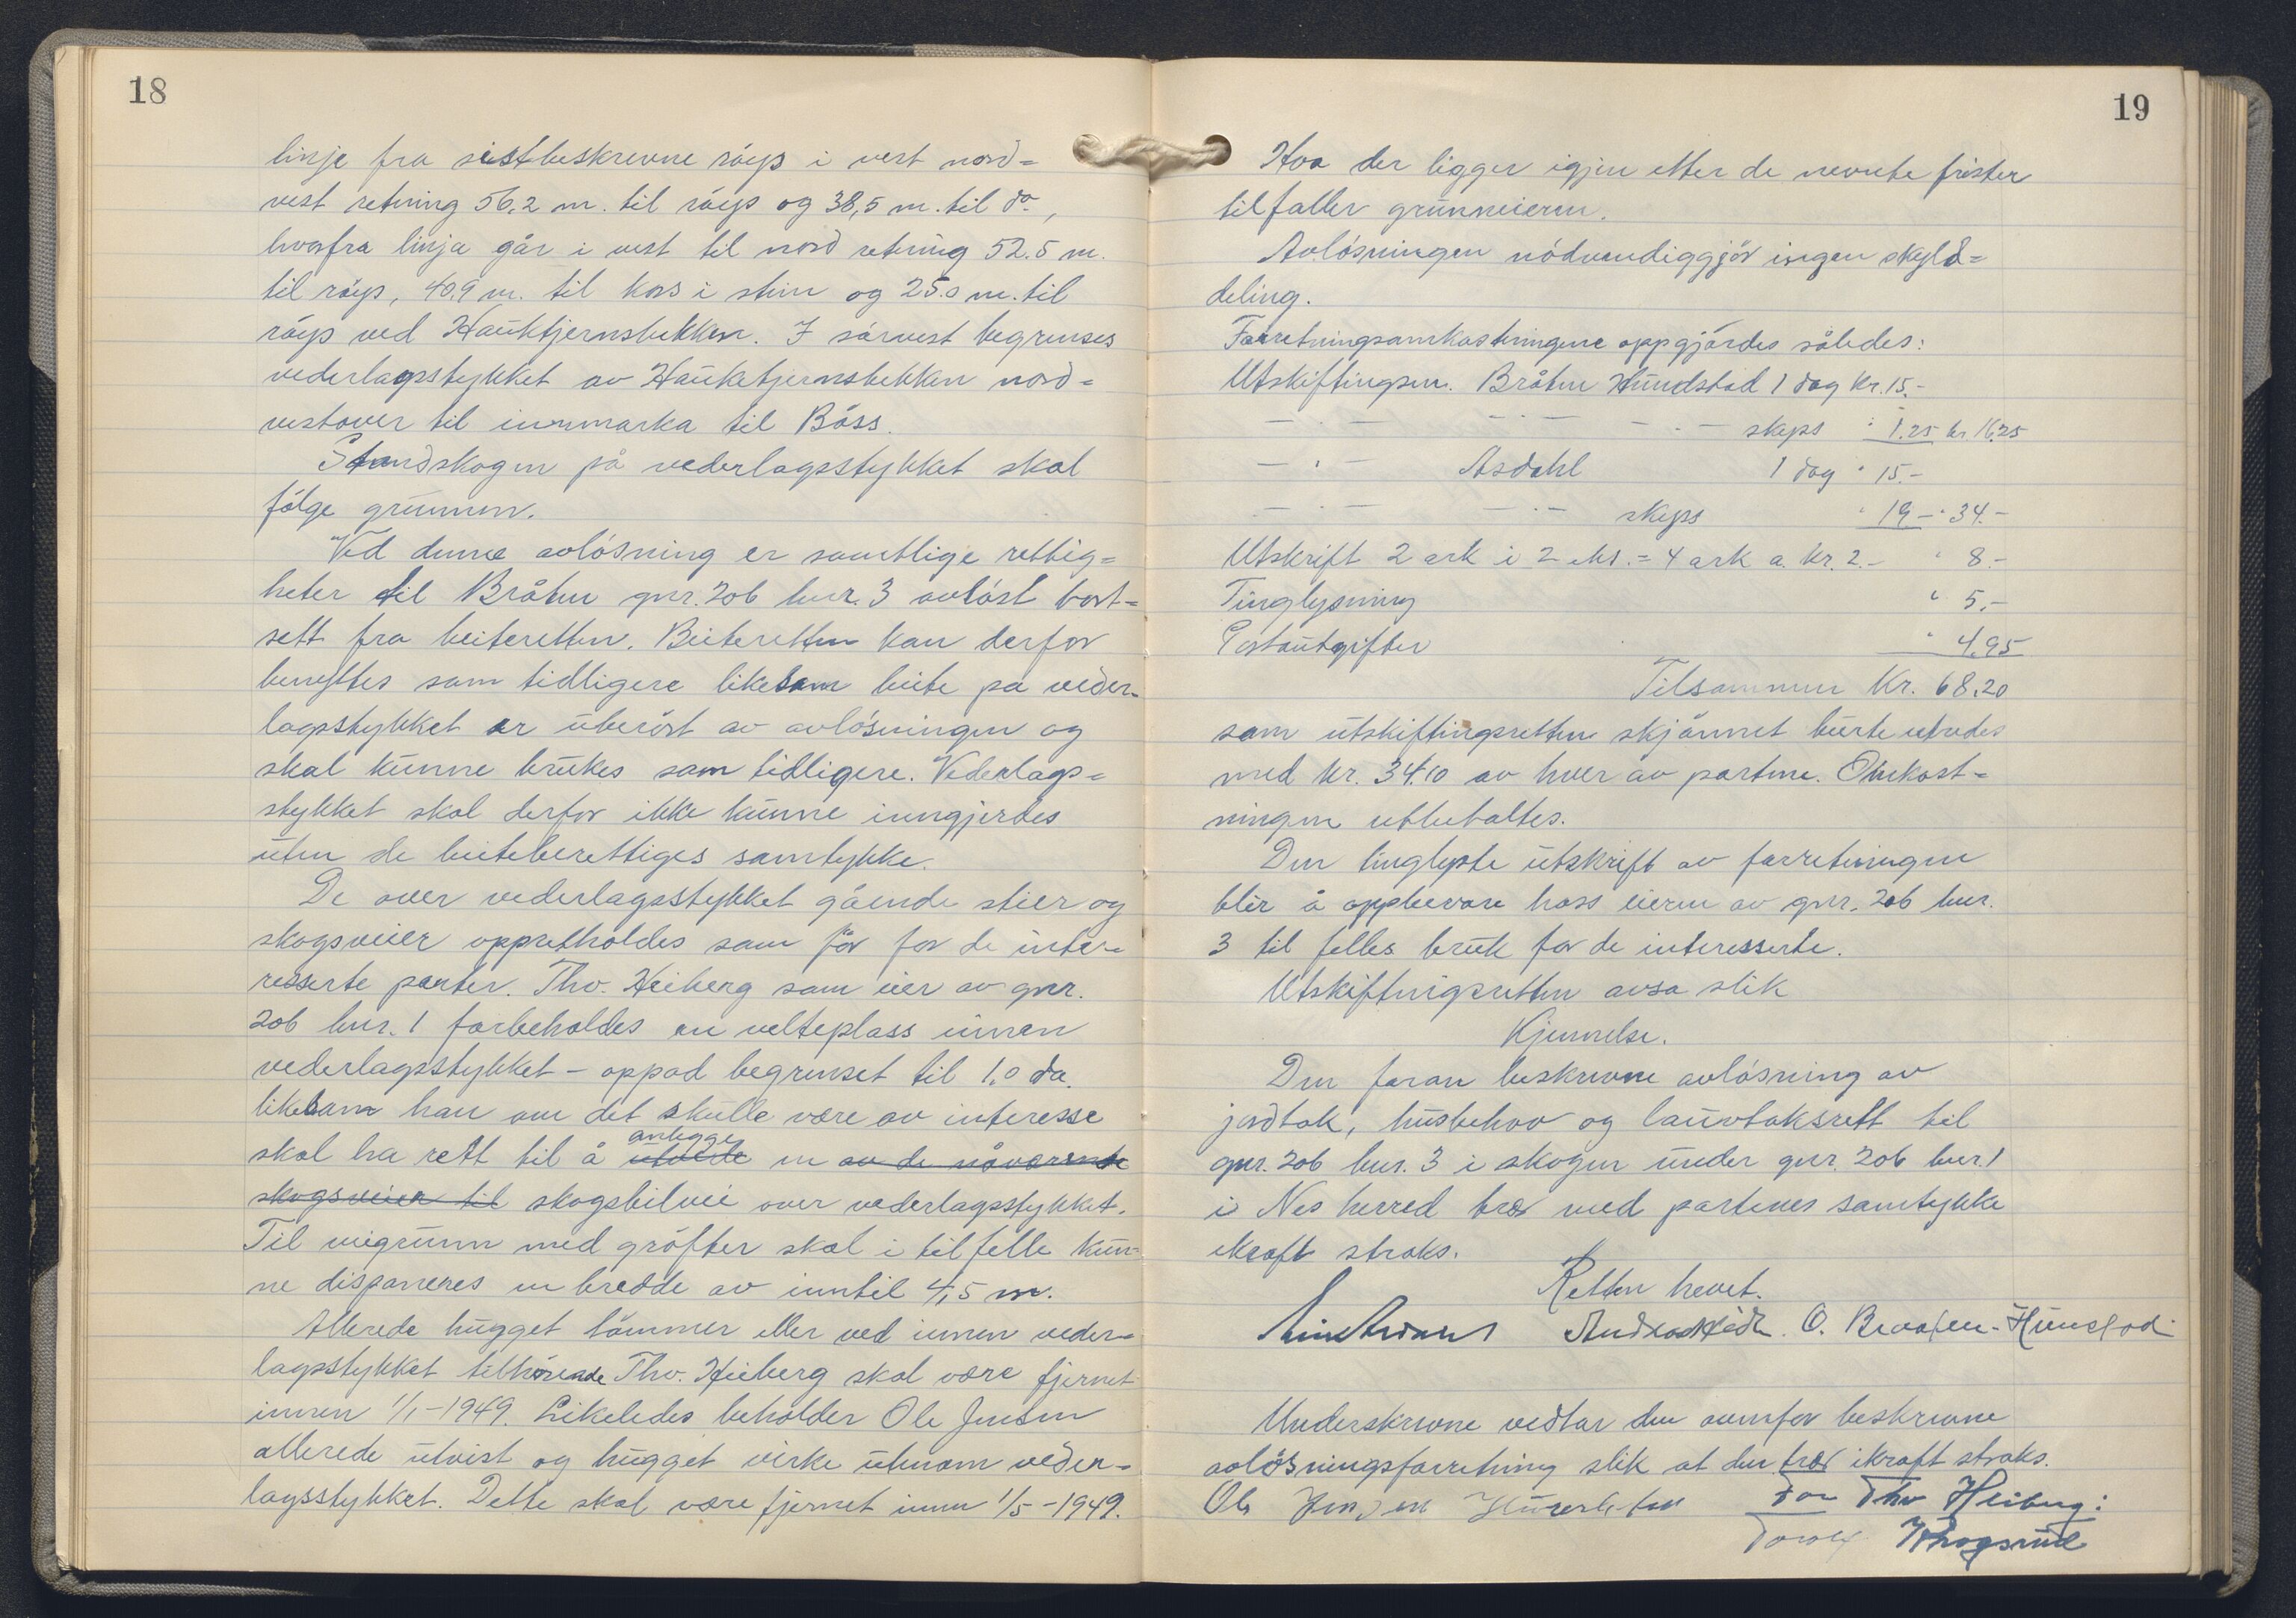 18
linje fra sistbeskrevne röys i vest nord=
vest retning 56,2 m. til röys og 38,5 m. til do,
hvorfra linja går i vest til nord retning 52.5 m.
til röys, 40,9 m. til kors i stein og 25.0 m. til
röys ved Hauktjernsbekken. I sörvest begrenses
vederlagsstykket av Hauktjernsbekken nord=
vestover til innmarka til Böss.
Standskogen på vederlagsstykket skal
fölge grunnen.
Ved denne avlösning er samtlige rettig=
heter til Bråten gnr. 206 bnr. 3 avlöst bort=
sett fra beiteretten. Beiteretten kan derfor
benyttes som tidligere likesom beite på veder=
lagsstykket er uberört av avlösningen og
skal kunne brukes som tidligere. Vederlags=
stykket skal derfor ikke kunne inngjerdes
uten de beiteberettiges samtykke.
De over vederlagsstykket gående stier og
skogsveier opprettholdes som för for de inter=
resserte parter. Thv. Heiberg som eier av gnr.
206 bnr. 1 forbeholdes en velteplass innen
vederlagsstykket - oppad begrenset til 1,0 da.
likesom han om det skulle være av interesse
anlegge
skal ha rett til å utvide en av de nåværende
skogsveier til skogsbilvei over vederlagsstykket.
Til veigrunn med gröfter skal i tilfelle kun=
ne disponeres en bredde av inntil 4,5 m.
Allerede hugget tömmer eller ved innen veder=
lagsstykket tilhörende Thv. Heiberg skal være fjernet
innen 1/1-1949. Likeledes beholder Ole Jensen
allerede utvist og hugget virke utenom veder=
lagsstykket. Dette skal være fjernet innen 1/5-1949.
19
Hva der ligger igjen etter de nevnte frister
tilfaller grunneieren.
Avlösningen nödvendiggjör ingen skyld=
deling.
Forretningsomkostningene oppgjördes således:
Utskiftingsm. Bråten Hundstad 1 dag kr. 15.-
- " - - " - - " - skyss " 1.25 kr. 16,25
- " - Asdahl 1 dag " 15.-
- " - - " - skyss " 19 - " 34.-
Utskrift 2 ark i 2 eks. = 4 ark a. kr. 2.- " 8.-
Tinglysning " 5.-
Postutgifter " 4.95
Tilsammen kr. 68.20
som utskiftingsretten skjönnet burte utredes
med kr. 34.10 av hver av partene. Omkost=
ningene utbetaltes.
Den tinglyste utskrift av forretningen
blir å oppbevare hoss eieren av gnr. 206 bnr.
3 til felles bruk for de interesserte.
Utskiftingsretten avsa slik
Kjennelse.
Den foran beskrevne avlösning av
jordtak, husbehov og lauvtaksrett til
gnr. 206 bnr. 3 i skogen under gnr. 206 bnr. 1
i Nes herred trær med partenes samtykke
ikraft straks.
Retten hevet.
O. Braaten-Hunstad
Underskrevne vedtar den ovenfor beskrevne
avlösningsforretning slik at den trær ikraft straks.
Ole Jensen For Thv Heiberg: